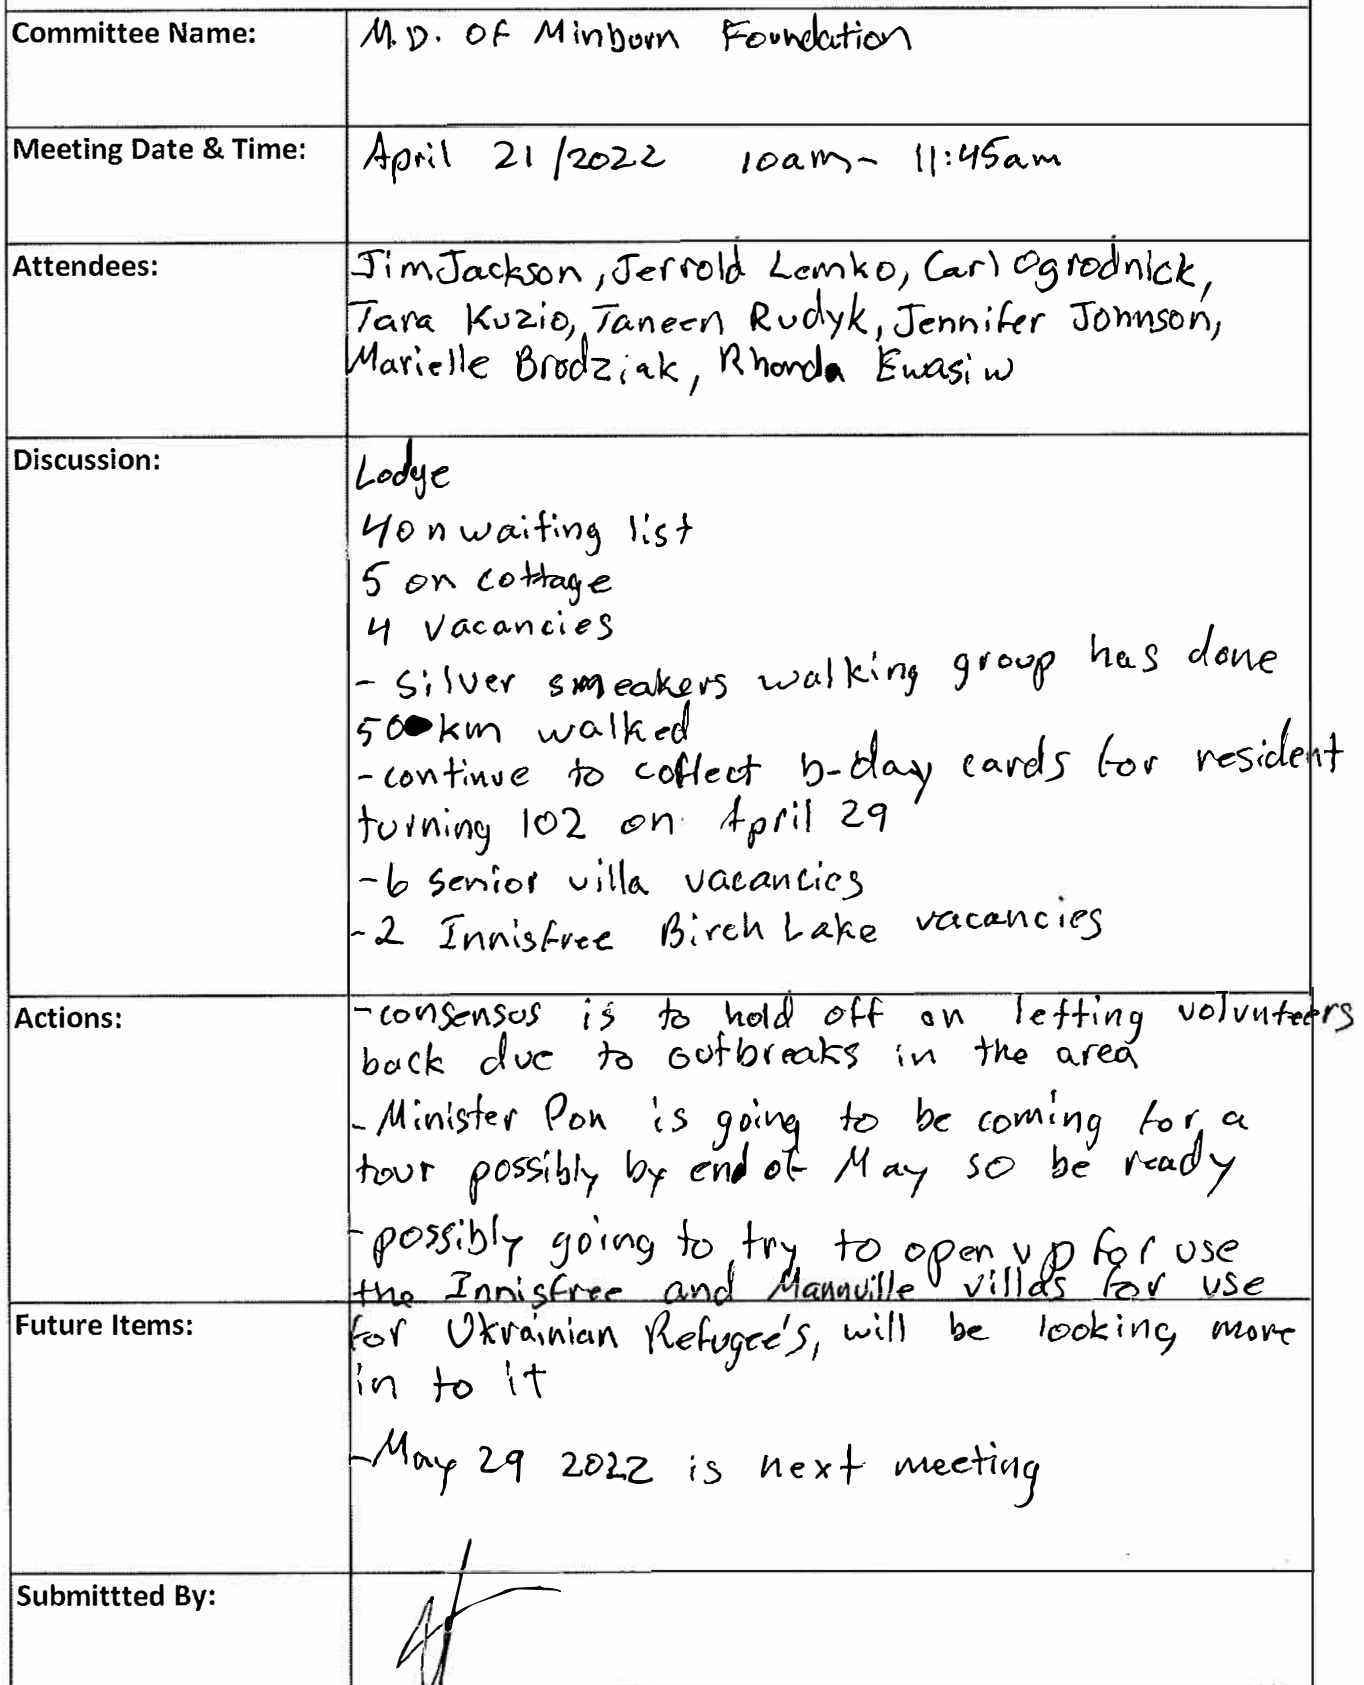 Committee Name: M.D. Of Minburn Foundation
Meeting Date & Time: April 21/2022 10am- 11:45am
Attendees: Jim Jackson, Jerrold Lemko, Carl Ogrodnick,
Tara Kuzio, Taneen Rudyk, Jennifer Johnson,
Marielle Brodziak, Rhonda Ewasiw
Discussion: Lodge
4 on waiting list
5 on cottage
4 vacancies
- silver smeakers walking group has done
50 km walked
-continue to collect b-day cards for resident
turning 102 on April 29
-6 senior villa vacancies
-2 Innisfree Birch Lake vacancies
Actions: -consensus is to hold off on letting volunteers
back due to outbreaks in the area
-Minister Pon is going to be coming for a
tour possibly by end of May so be ready
-possibly going to try to open up for use
the Innisfree and Mannville villas for use
Future Items: for Ukrainian Refugee's, will be looking more
in to it
-May 29 2022 is next meeting
Submittted By: